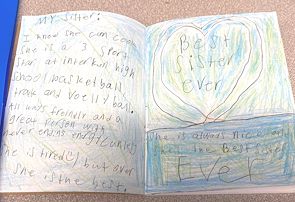 MY Sister:
I know she can cook
She is a 3 Sport
Star at interkon high
School basketball,
track and Voellyball.
All ways friendly and a
great Person with
never ending energy (unless
she is tired) but over
She is the best.
Best
Sister
ever
She is always nice and
the Best Sister
Ever